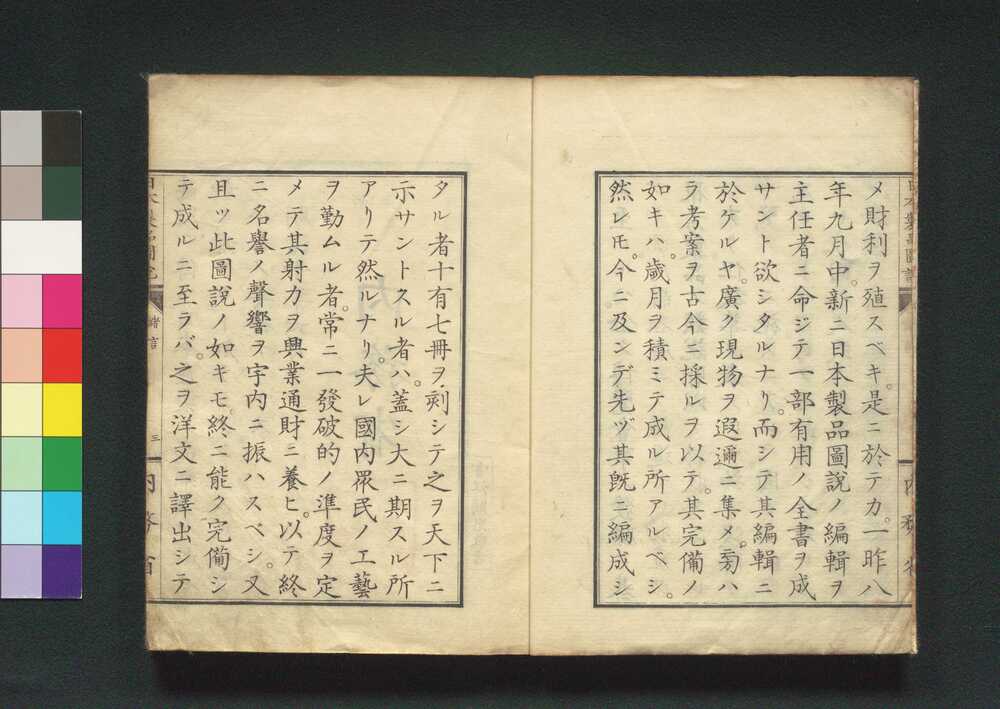 メ財利ヲ殖スベキ。是ニ於テカ。一昨八
年九月中。新ニ日本製品圖說ノ編輯ヲ
主任者ニ命ジテ一部有用ノ全書ヲ成
サント欲シタルナリ。而シテ其編輯ニ
於ケルヤ。廣ク現物ヲ遐邇ニ集メ。旁ハ
ラ考案ヲ古今ニ採ルヲ以テ。其完備ノ
如キハ。歲月ヲ積ミテ成ル所アルベシ。
然レ𪜈。今ニ及ンデ先ヅ其旣ニ編成シ
タル者十有七冊ヲ刻シテ之ヲ天下ニ
示サントスル者ハ。蓋シ大ニ期スル所
アリテ然ルナリ。夫レ國内眾民ノ工藝
ヲ勤ムル者。常ニ一發破的ノ準度ヲ定
メテ其射力ヲ興業通財ニ養ヒ。以テ終
ニ名譽ノ聲響ヲ宇内ニ振ハスベシ。又
且ツ此圖說ノ如キモ。終ニ能ク完備シ
テ成ルニ至ラバ。之ヲ洋文ニ譯出シテ
緒言
三
内務省